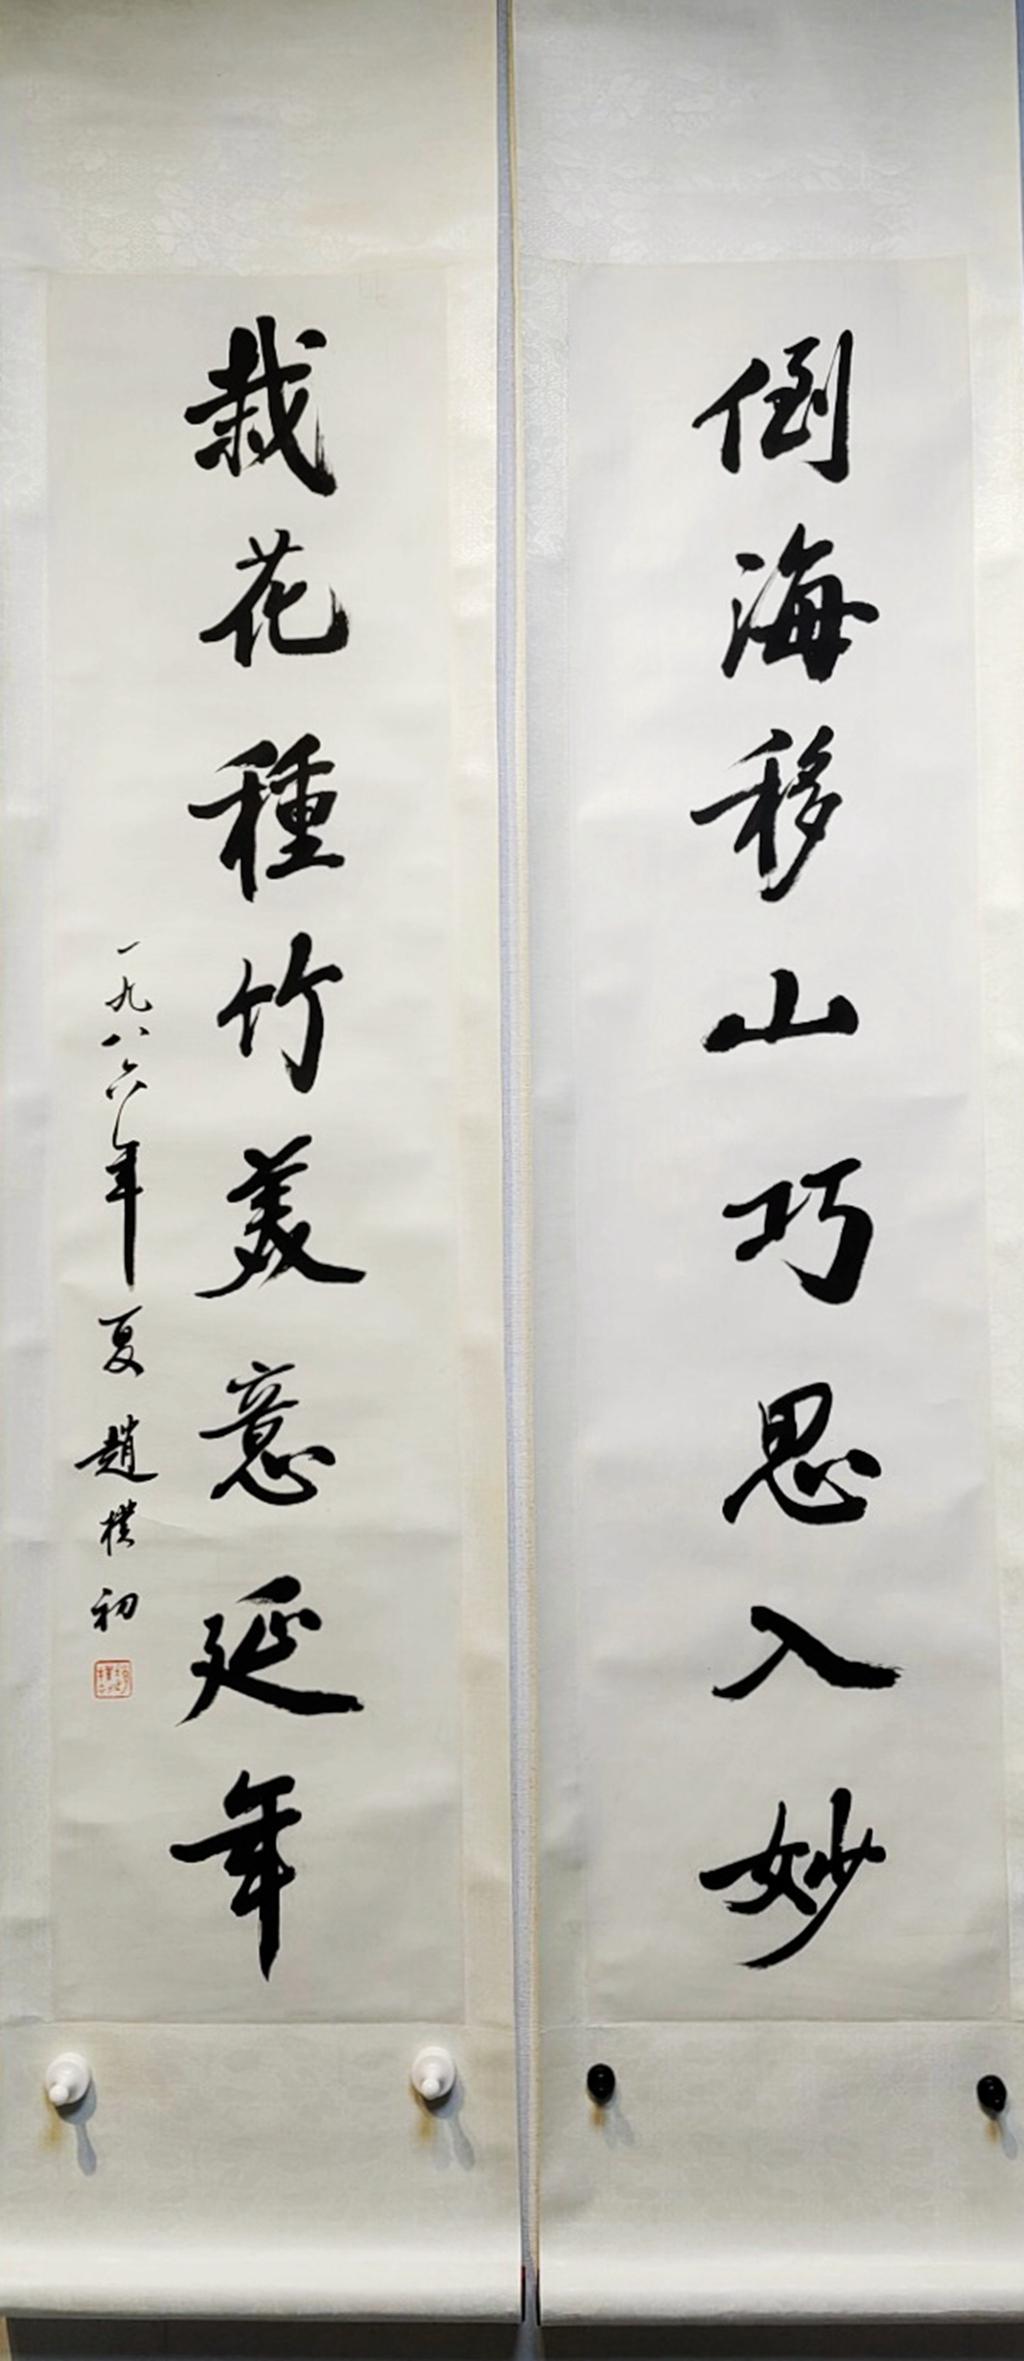 倒海移山巧思入妙
栽花種竹美意延年
一九八六年夏趙樸初